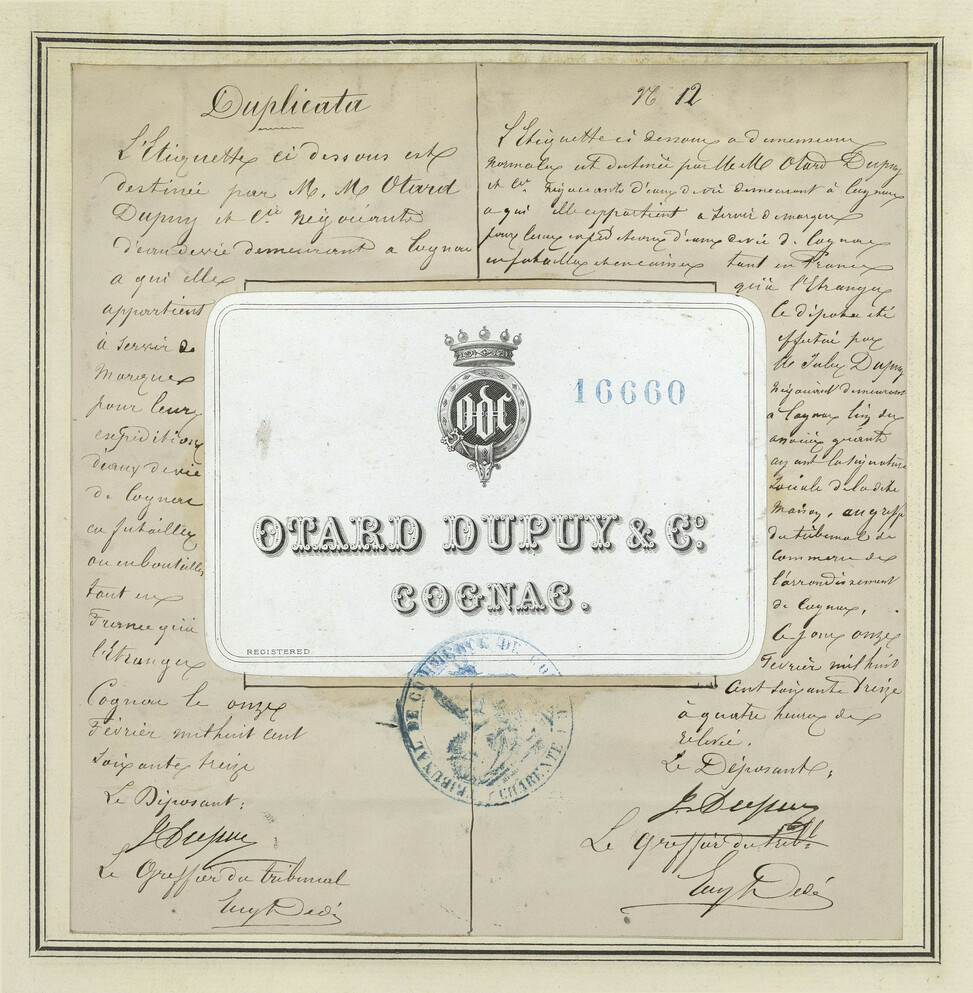 Duplicata
L'Etiquette ci dessous est
destinée par M. M Otard
Dupuy et Cie Négociants
d'eau de vie demeurant a Cognac
a qui elle
appartient
à servir de
marque
pour leur
expédition
d'eaux de vie
de Cognac
en futailles
ou en bouteilles
tant en
France qu'à
l'Etranger
Cognac le onze
Février mil huit cent
soixante treize
Le Déposant:
J. Dupuy
Le Greffier du tribunal
No 12
L'Etiquette ci dessous a dimension
normale est destinée par M. M. Otard Dupuy
et Cie. Négociants d'eaux de vie demeurant à Cognac
a qui elle appartient a servir de marque
pour leurs expéditions d'eaux de vie de Cognac
en futailles et en caisses tant en France
qu'à l'Etranger
Ce dépot a été
effectué par
M Jules Dupuy
Négociant demeurant
a Cognac l'un des
associés gérants
ayant la signature
sociale de la dite
Maison, au greffe
du tribunal de
commerce de
l'arrondissement
de Cognac,
Ce jour onze
Février mil huit
cent soixante treize
à quatre heures de
relevée.
Le Déposant,
J. Dupuy
Le Greffier du trib.
16660
ODC
OTARD DUPUY & Co.
COGNAC.
REGISTERED
TRIBUNAL DE COMMERCE DE CO
CHARENTE